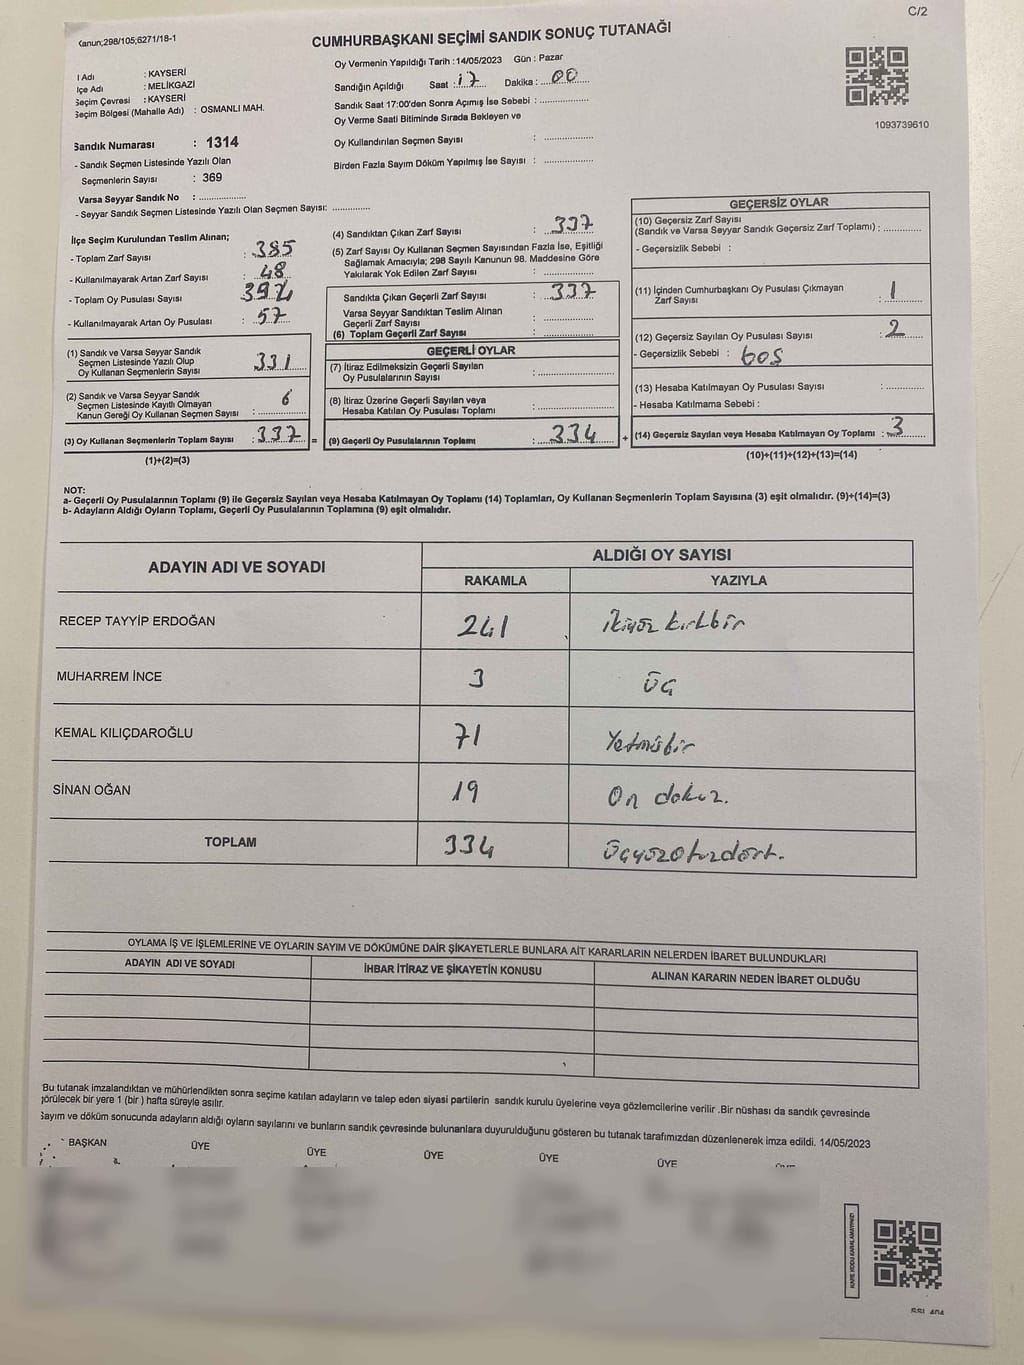 C/2
Kanun;298/105;6271/18-1
CUMHURBAŞKANI SEÇİMİ SANDIK SONUÇ TUTANAĞI
Oy Vermenin Yapıldığı Tarih :14/05/2023 Gün : Pazar
Sandığın Açıldığı Saat :17 Dakika : 00
Sandık Saat 17:00'den Sonra Açımış İse Sebebi :
Oy Verme Saati Bitiminde Sırada Bekleyen ve
Oy Kullandırılan Seçmen Sayısı :
Birden Fazla Sayım Döküm Yapılmış İse Sayısı :
1093739610
l Adı : KAYSERİ
lçe Adı : MELİKGAZİ
Seçim Çevresi : KAYSERİ
Seçim Bölgesi (Mahalle Adı) : OSMANLI MAH.
Sandık Numarası : 1314
- Sandık Seçmen Listesinde Yazılı Olan
Seçmenlerin Sayısı : 369
Varsa Seyyar Sandık No :
- Seyyar Sandık Seçmen Listesinde Yazılı Olan Seçmen Sayısı:
İlçe Seçim Kurulundan Teslim Alınan;
- Toplam Zarf Sayısı : 385
- Kullanılmayarak Artan Zarf Sayısı : 48
- Toplam Oy Pusulası Sayısı : 394
- Kullanılmayarak Artan Oy Pusulası : 57
(1) Sandık ve Varsa Seyyar Sandık
Seçmen Listesinde Yazılı Olup
Oy Kullanan Seçmenlerin Sayısı : 331
(2) Sandık ve Varsa Seyyar Sandık
Seçmen Listesinde Kayıtlı Olmayan
Kanun Gereği Oy Kullanan Seçmen Sayısı : 6
(3) Oy Kullanan Seçmenlerin Toplam Sayısı : 337 =
(1)+(2)=(3)
(4) Sandıktan Çıkan Zarf Sayısı : 337
(5) Zarf Sayısı Oy Kullanan Seçmen Sayısından Fazla İse, Eşitliği
Sağlamak Amacıyla; 298 Sayılı Kanunun 98. Maddesine Göre
Yakılarak Yok Edilen Zarf Sayısı :
Sandıkta Çıkan Geçerli Zarf Sayısı : 337
Varsa Seyyar Sandıktan Teslim Alınan
Geçerli Zarf Sayısı :
(6) Toplam Geçerli Zarf Sayısı :
GEÇERLİ OYLAR
(7) İtiraz Edilmeksizin Geçerli Sayılan
Oy Pusulalarının Sayısı :
(8) İtiraz Üzerine Geçerli Sayılan veya
Hesaba Katılan Oy Pusulası Toplamı :
(9) Geçerli Oy Pusulalarının Toplamı : 334 +
GEÇERSİZ OYLAR
(10) Geçersiz Zarf Sayısı
(Sandık ve Varsa Seyyar Sandık Geçersiz Zarf Toplamı) :
- Geçersizlik Sebebi :
(11) İçinden Cumhurbaşkanı Oy Pusulası Çıkmayan
Zarf Sayısı : 1
(12) Geçersiz Sayılan Oy Pusulası Sayısı : 2
- Geçersizlik Sebebi : boş
(13) Hesaba Katılmayan Oy Pusulası Sayısı :
- Hesaba Katılmama Sebebi :
(14) Geçersiz Sayılan veya Hesaba Katılmayan Oy Toplamı : 3
(10)+(11)+(12)+(13)=(14)
NOT:
a- Geçerli Oy Pusulalarının Toplamı (9) ile Geçersiz Sayılan veya Hesaba Katılmayan Oy Toplamı (14) Toplamları, Oy Kullanan Seçmenlerin Toplam Sayısına (3) eşit olmalıdır. (9)+(14)=(3)
b- Adayların Aldığı Oyların Toplamı, Geçerli Oy Pusulalarının Toplamına (9) eşit olmalıdır.
ADAYIN ADI VE SOYADI ALDIĞI OY SAYISI
RAKAMLA YAZIYLA
RECEP TAYYİP ERDOĞAN 241 ikiyüz kırkbir
MUHARREM İNCE 3 üç
KEMAL KILIÇDAROĞLU 71 Yetmişbir
SİNAN OĞAN 19 On dokuz.
TOPLAM 334 üçyüzotuzdört.
OYLAMA İŞ VE İŞLEMLERİNE VE OYLARIN SAYIM VE DÖKÜMÜNE DAİR ŞİKAYETLERLE BUNLARA AİT KARARLARIN NELERDEN İBARET BULUNDUKLARI
ADAYIN ADI VE SOYADI İHBAR İTİRAZ VE ŞİKAYETİN KONUSU ALINAN KARARIN NEDEN İBARET OLDUĞU
Bu tutanak imzalandıktan ve mühürlendikten sonra seçime katılan adayların ve talep eden siyasi partilerin sandık kurulu üyelerine veya gözlemcilerine verilir .Bir nüshası da sandık çevresinde
görülecek bir yere 1 (bir ) hafta süreyle asılır.
Sayım ve döküm sonucunda adayların aldığı oyların sayılarını ve bunların sandık çevresinde bulunanlara duyurulduğunu gösteren bu tutanak tarafımızdan düzenlenerek imza edildi. 14/05/2023
BAŞKAN ÜYE ÜYE ÜYE ÜYE ÜYE
KARE KODU KARALAMAYINIZ!